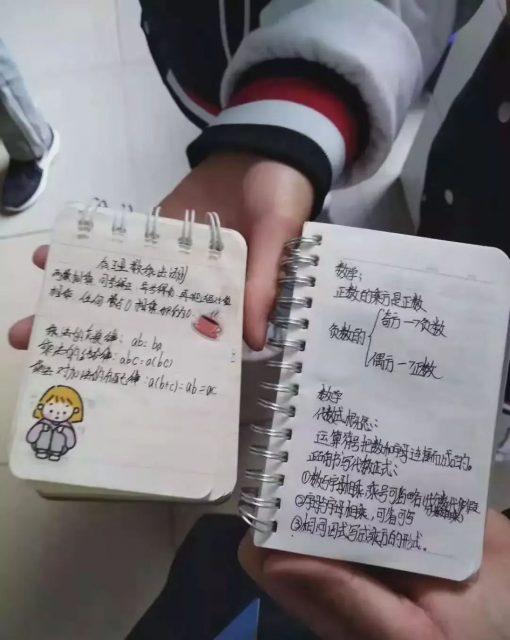 有理数乘法法则
两数相乘 同号得正 异号得负 再把绝对值
相乘 任何数与0 相乘都得0
乘法的交换律：ab=ba
乘法的结合律：abc=a(bc)
乘法对加法的分配律：a(b+c)=ab=ac
数学：
正数的乘方是正数
负数的
奇方→负数
偶方→正数
数学
代数式概念：
运算符号把数和字母连接而成的。
正确书写代数式：
①数与字母相乘，乘号可省略
②字母与字母相乘，可省可写
③相同因式写成乘方的形式。